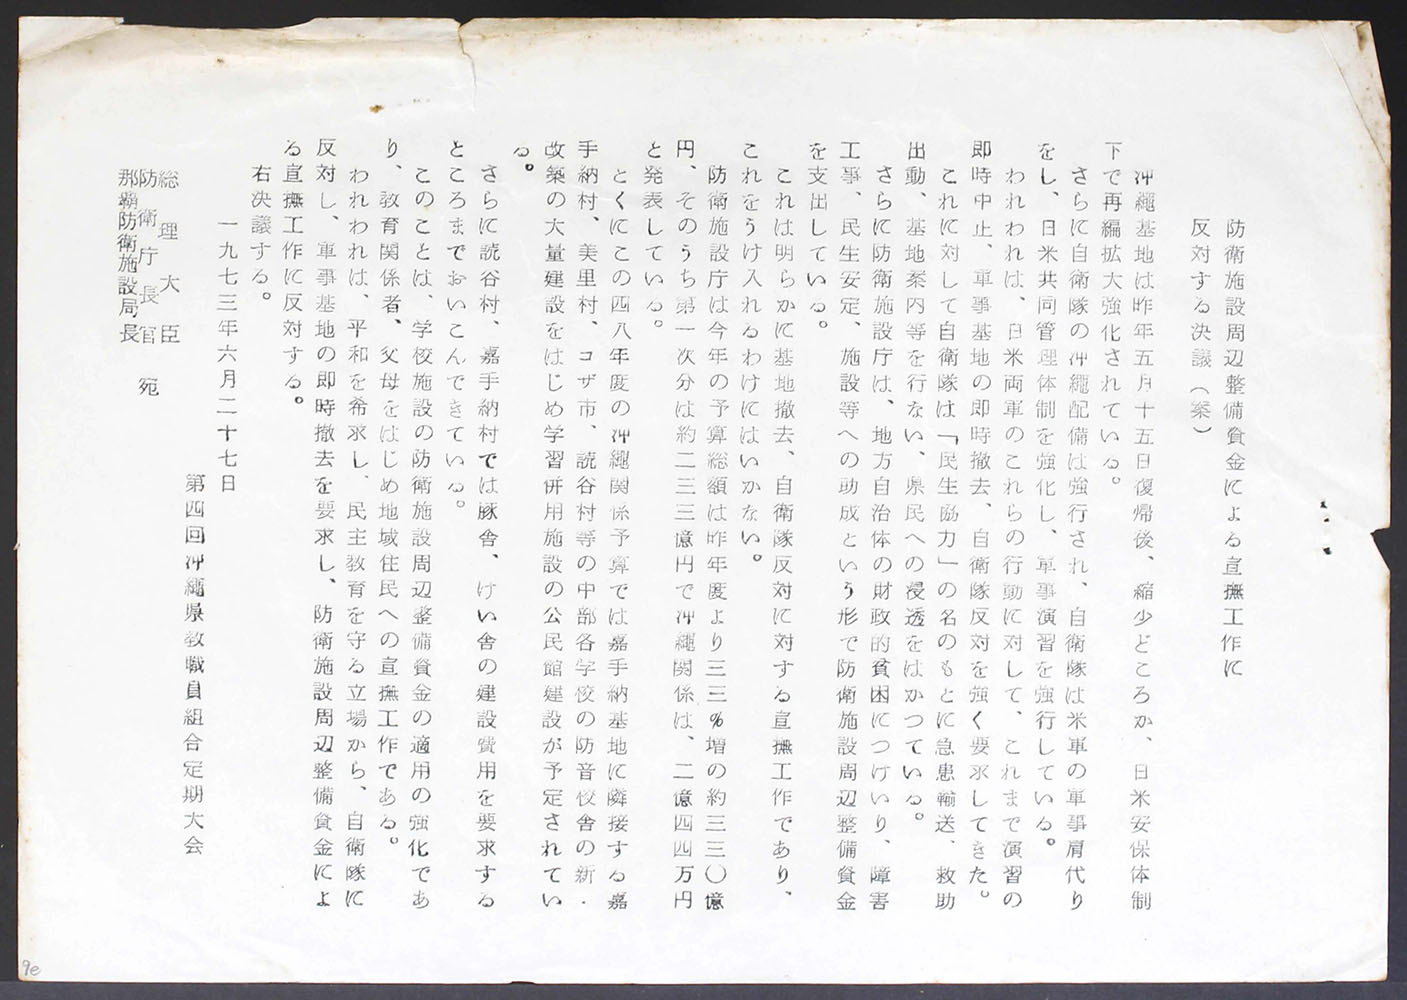 防衛施設周辺整備資金による宣撫工作に
反対する決議（案）
沖縄基地は昨年五月十五日復帰後、縮少どころか、日米安保体制
下で再編拡大強化されている。
さらに自衛隊の沖縄配備は強行され、自衛隊は米軍の軍事肩代り
をし、日米共同管理体制を強化し、軍事演習を強行している。
われわれは、日米両軍のこれらの行動に対して、これまで演習の
即時中止、軍事基地の即時撤去、自衛隊反対を強く要求してきた。
これに対して自衛隊は「民生協力」の名のもとに急患輸送、救助
出動、基地案内等を行ない、県民への浸透をはかつている。
さらに防衛施設庁は、地方自治体の財政的貧困につけいり、障害
工事、民生安定、施設等への助成という形で防衛施設周辺整備資金
を支出している。
これは明らかに基地撤去、自衛隊反対に対する宣撫工作であり、
これをうけ入れるわけにはいかない。
防衛施設庁は今年の予算総額は昨年度より三三％増の約三三〇億
円、そのうち第一次分は約二三三億円で沖縄関係は、二億四四万円
と発表している。
とくにこの四八年度の沖縄関係予算では嘉手納基地に隣接する嘉
手納村、美里村、コザ市、読谷村等の中部各学校の防音校舎の新・
改築の大量建設をはじめ学習併用施設の公民館建設が予定されてい
る。
さらに読谷村、嘉手納村では豚舎、けい舎の建設費用を要求する
ところまでおいこんできている。
このことは、学校施設の防衛施設周辺整備資金の適用の強化であ
り、教育関係者、父母をはじめ地域住民への宣撫工作である。
われわれは、平和を希求し、民主教育を守る立場から、自衛隊に
反対し、軍事基地の即時撤去を要求し、防衛施設周辺整備資金によ
る宣撫工作に反対する。
右決議する。
一九七三年六月二十七日
第四回沖縄県教職員組合定期大会
総理大臣
防衛庁長官　宛
那覇防衛施設局長
9e